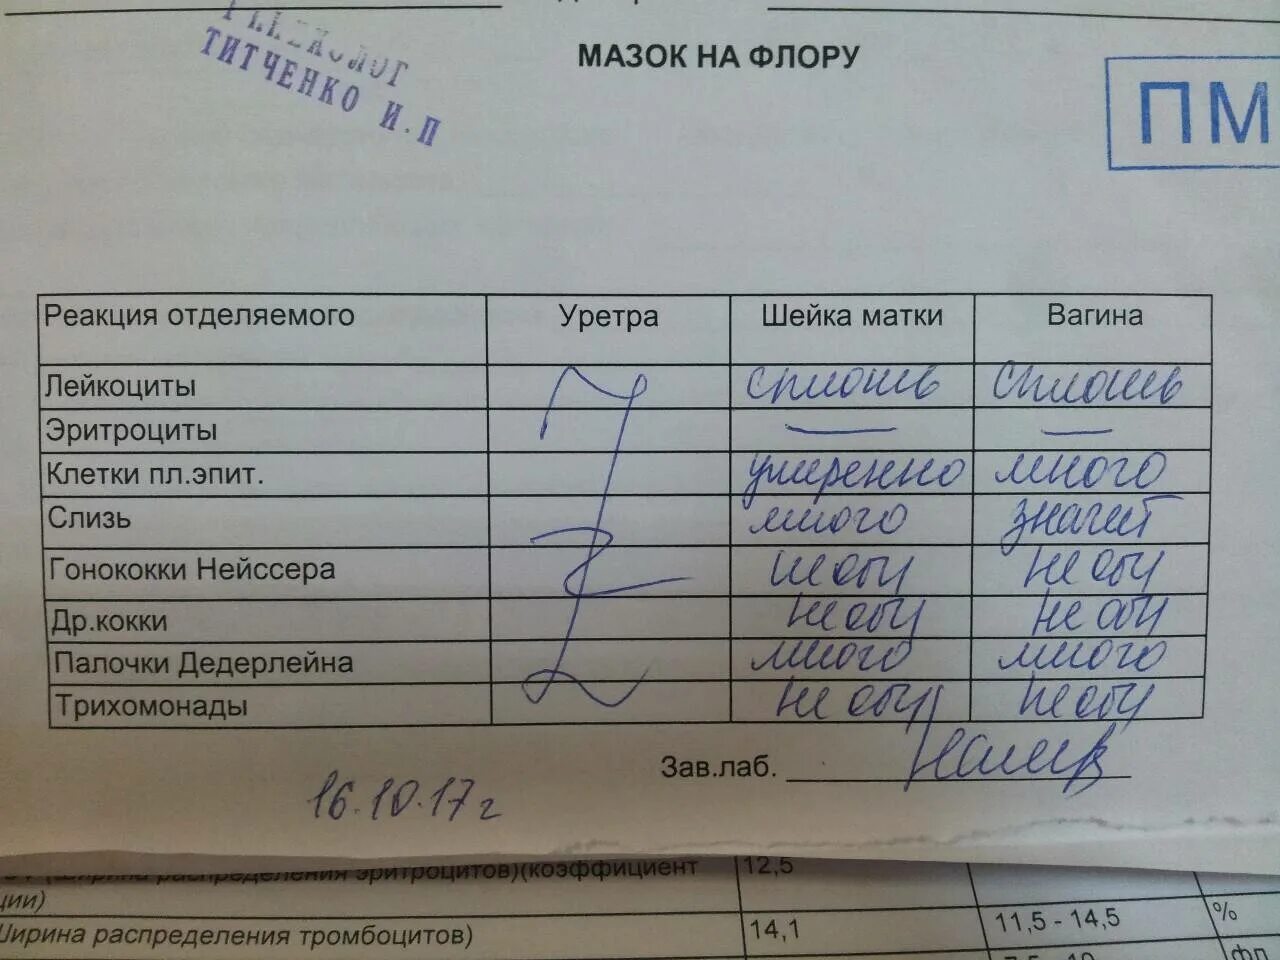 ТИТЧЕНКО И.П
МАЗОК НА ФЛОРУ
ПМ
Реакция отделяемого Уретра Шейка матки Вагина
Лейкоциты сплошь сплошь
Эритроциты — —
Клетки пл.эпит. умеренно много
Слизь много значит
Гонококки Нейссера не обн не обн
Др.кокки не обн не обн
Палочки Дедерлейна много много
Трихомонады не обн не обн
Зав.лаб.
16.10.17г
распределения эритроцитов)(коэффициент 12,5
ции)
Ширина распределения тромбоцитов) 14,1 11,5 - 14,5 %
фл